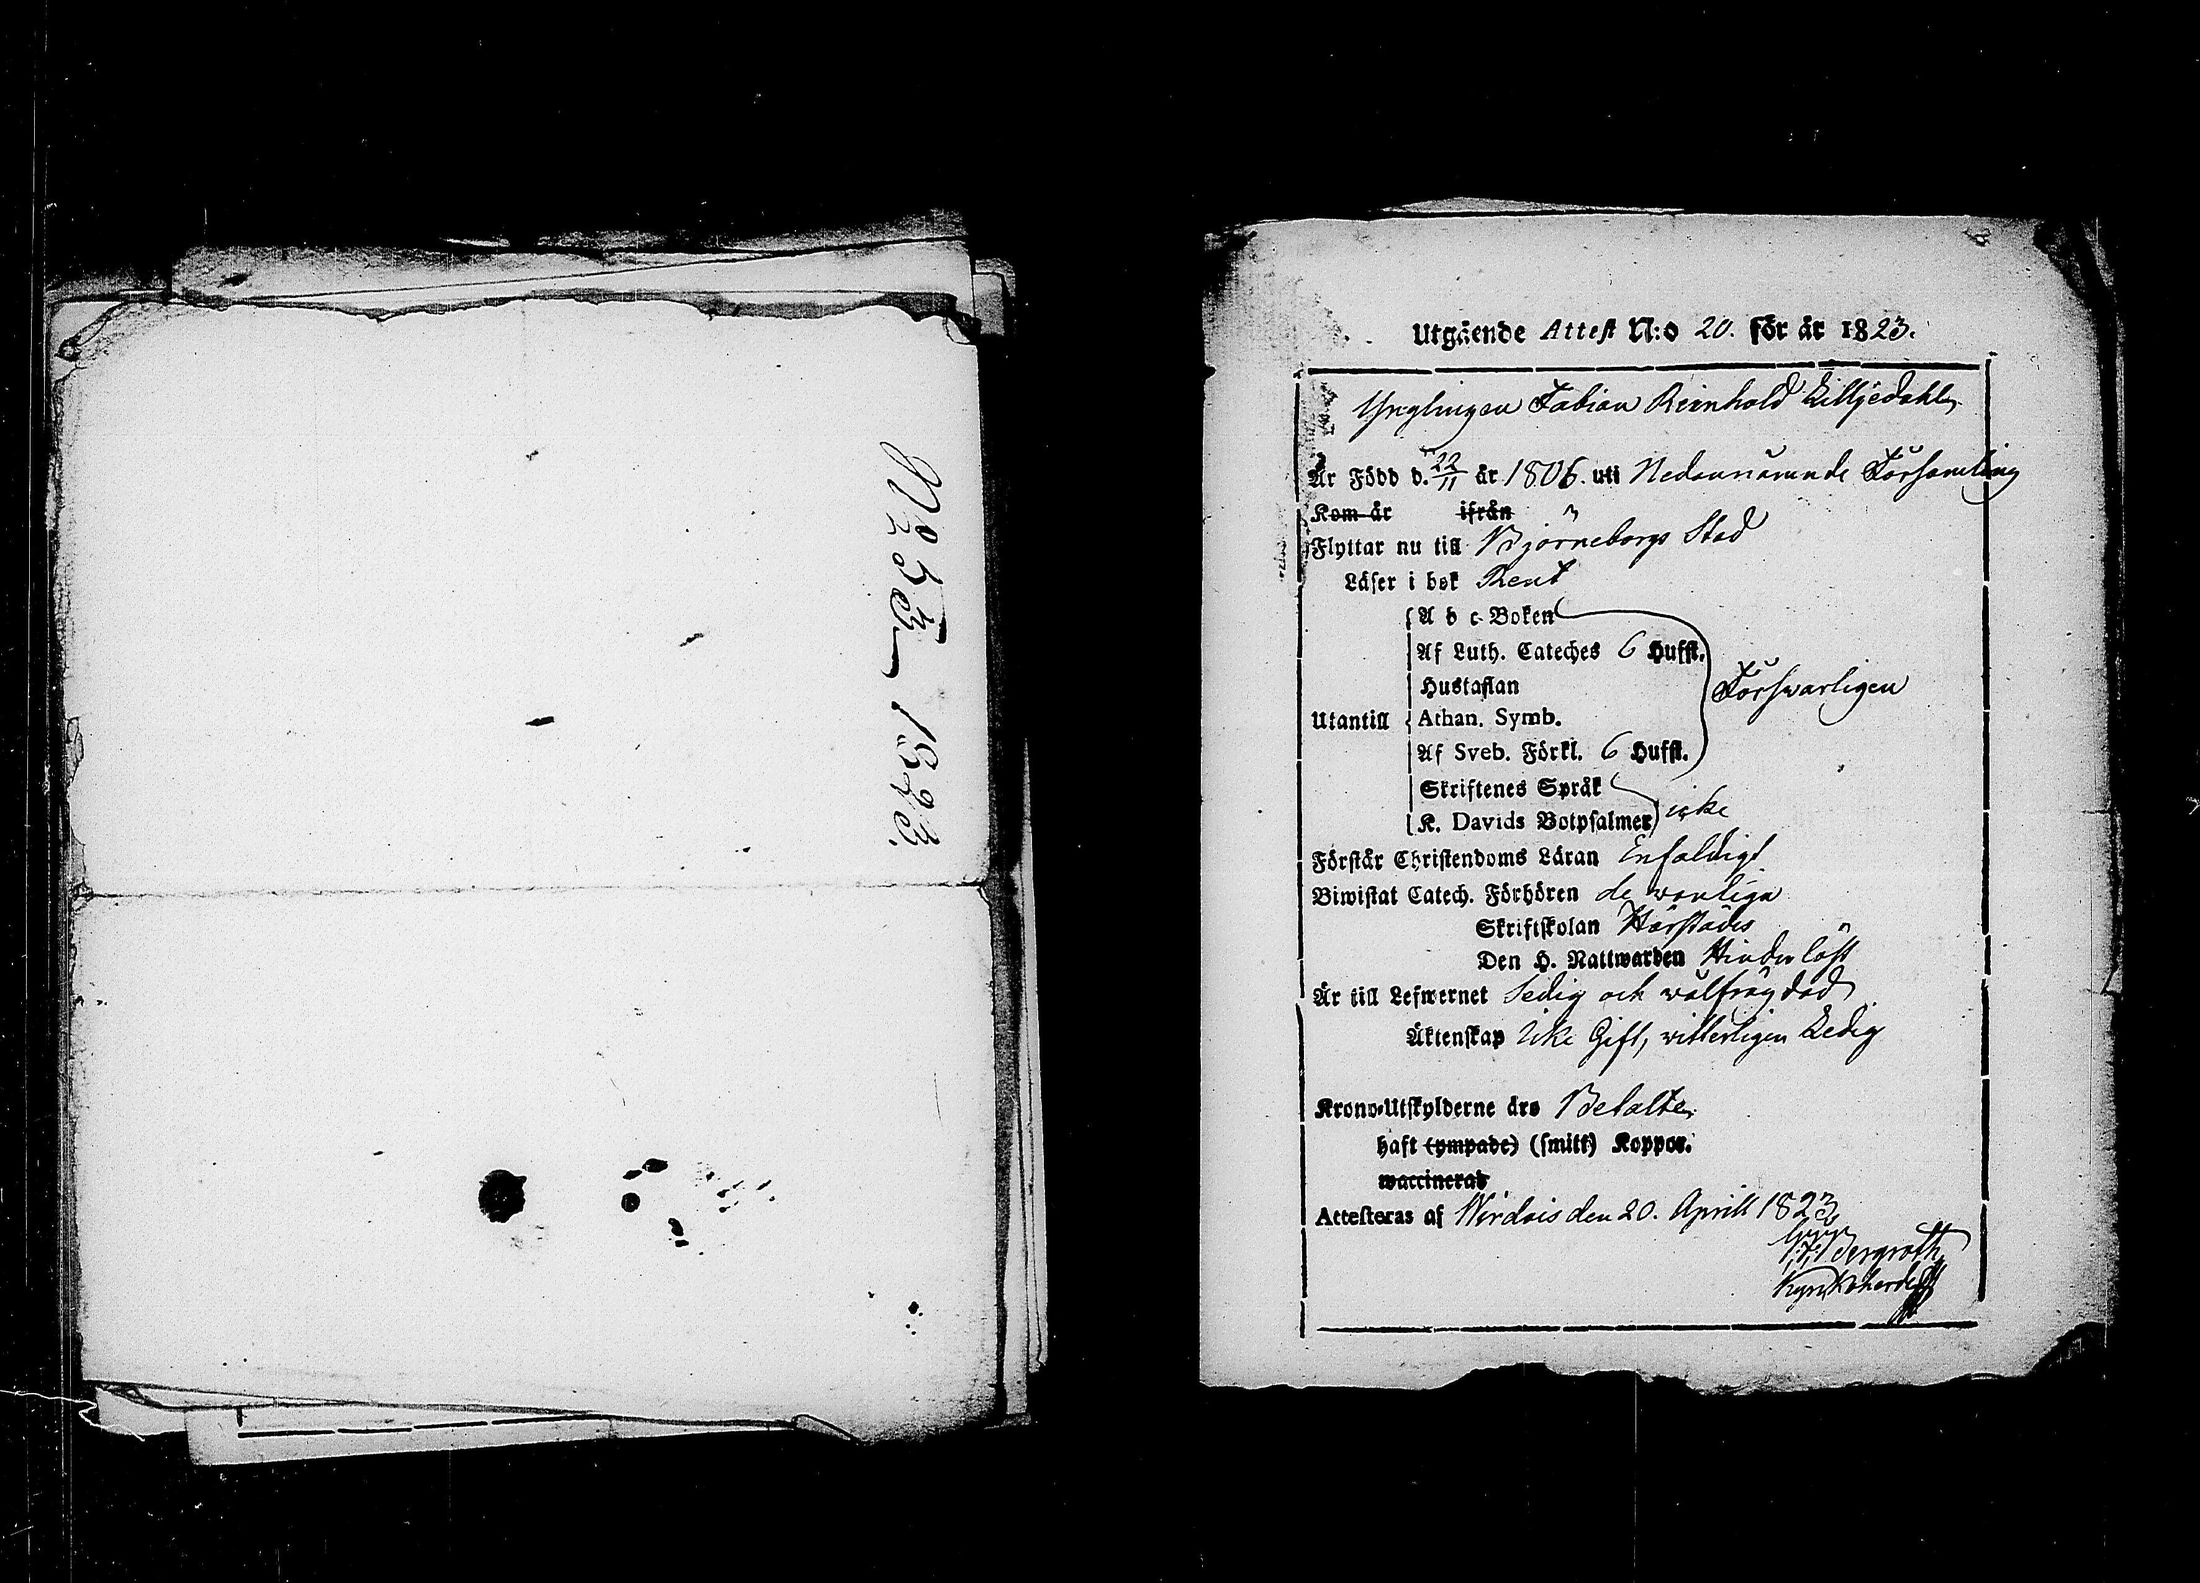 No 53 1823.
Utgående Attest N:o 20. för år 1823.
Ynglingen Fabian Reinhold Lilljedahl
Är Född d. 22/11 år 1806. uti Nedannämnde Församling
Kom år ifrån "
Flyttar nu till Björneborgs Stad
Läser i bok Rent
A b c Boken
Af Luth. Cateches 6 Hufst.
Hustaflan
Försvarligen
Utantill Athan. Symb.
Af Sveb. Förkl. 6 Hufst.
Skriftenes Språk
K. Davids Botpsalmer icke
Förstår Christendoms Läran Enfaldigt
Biwistat Catech. Förhören de vanliga
Skriftskolan Härstädes
Den H. Nattwarden Hinderlöst
Är till Lefwernet Sedig och wälfrägdad
Äktenskap Icke Gift, witterligen Ledig
Krono-Utskylderne äro Betalte.
haft (ympade) (smitt) Koppor.
waccinerad
Attesteras af Wirdois den 20. Aprill 1823.
Bergroth
Kyrkoherde